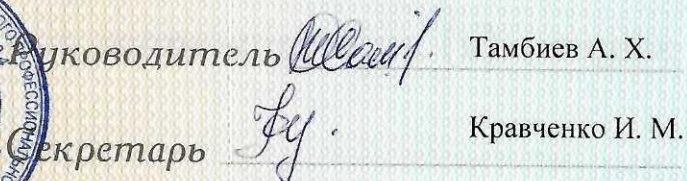 Руководитель Тамбиев А. Х.
Секретарь Кравченко И. М.